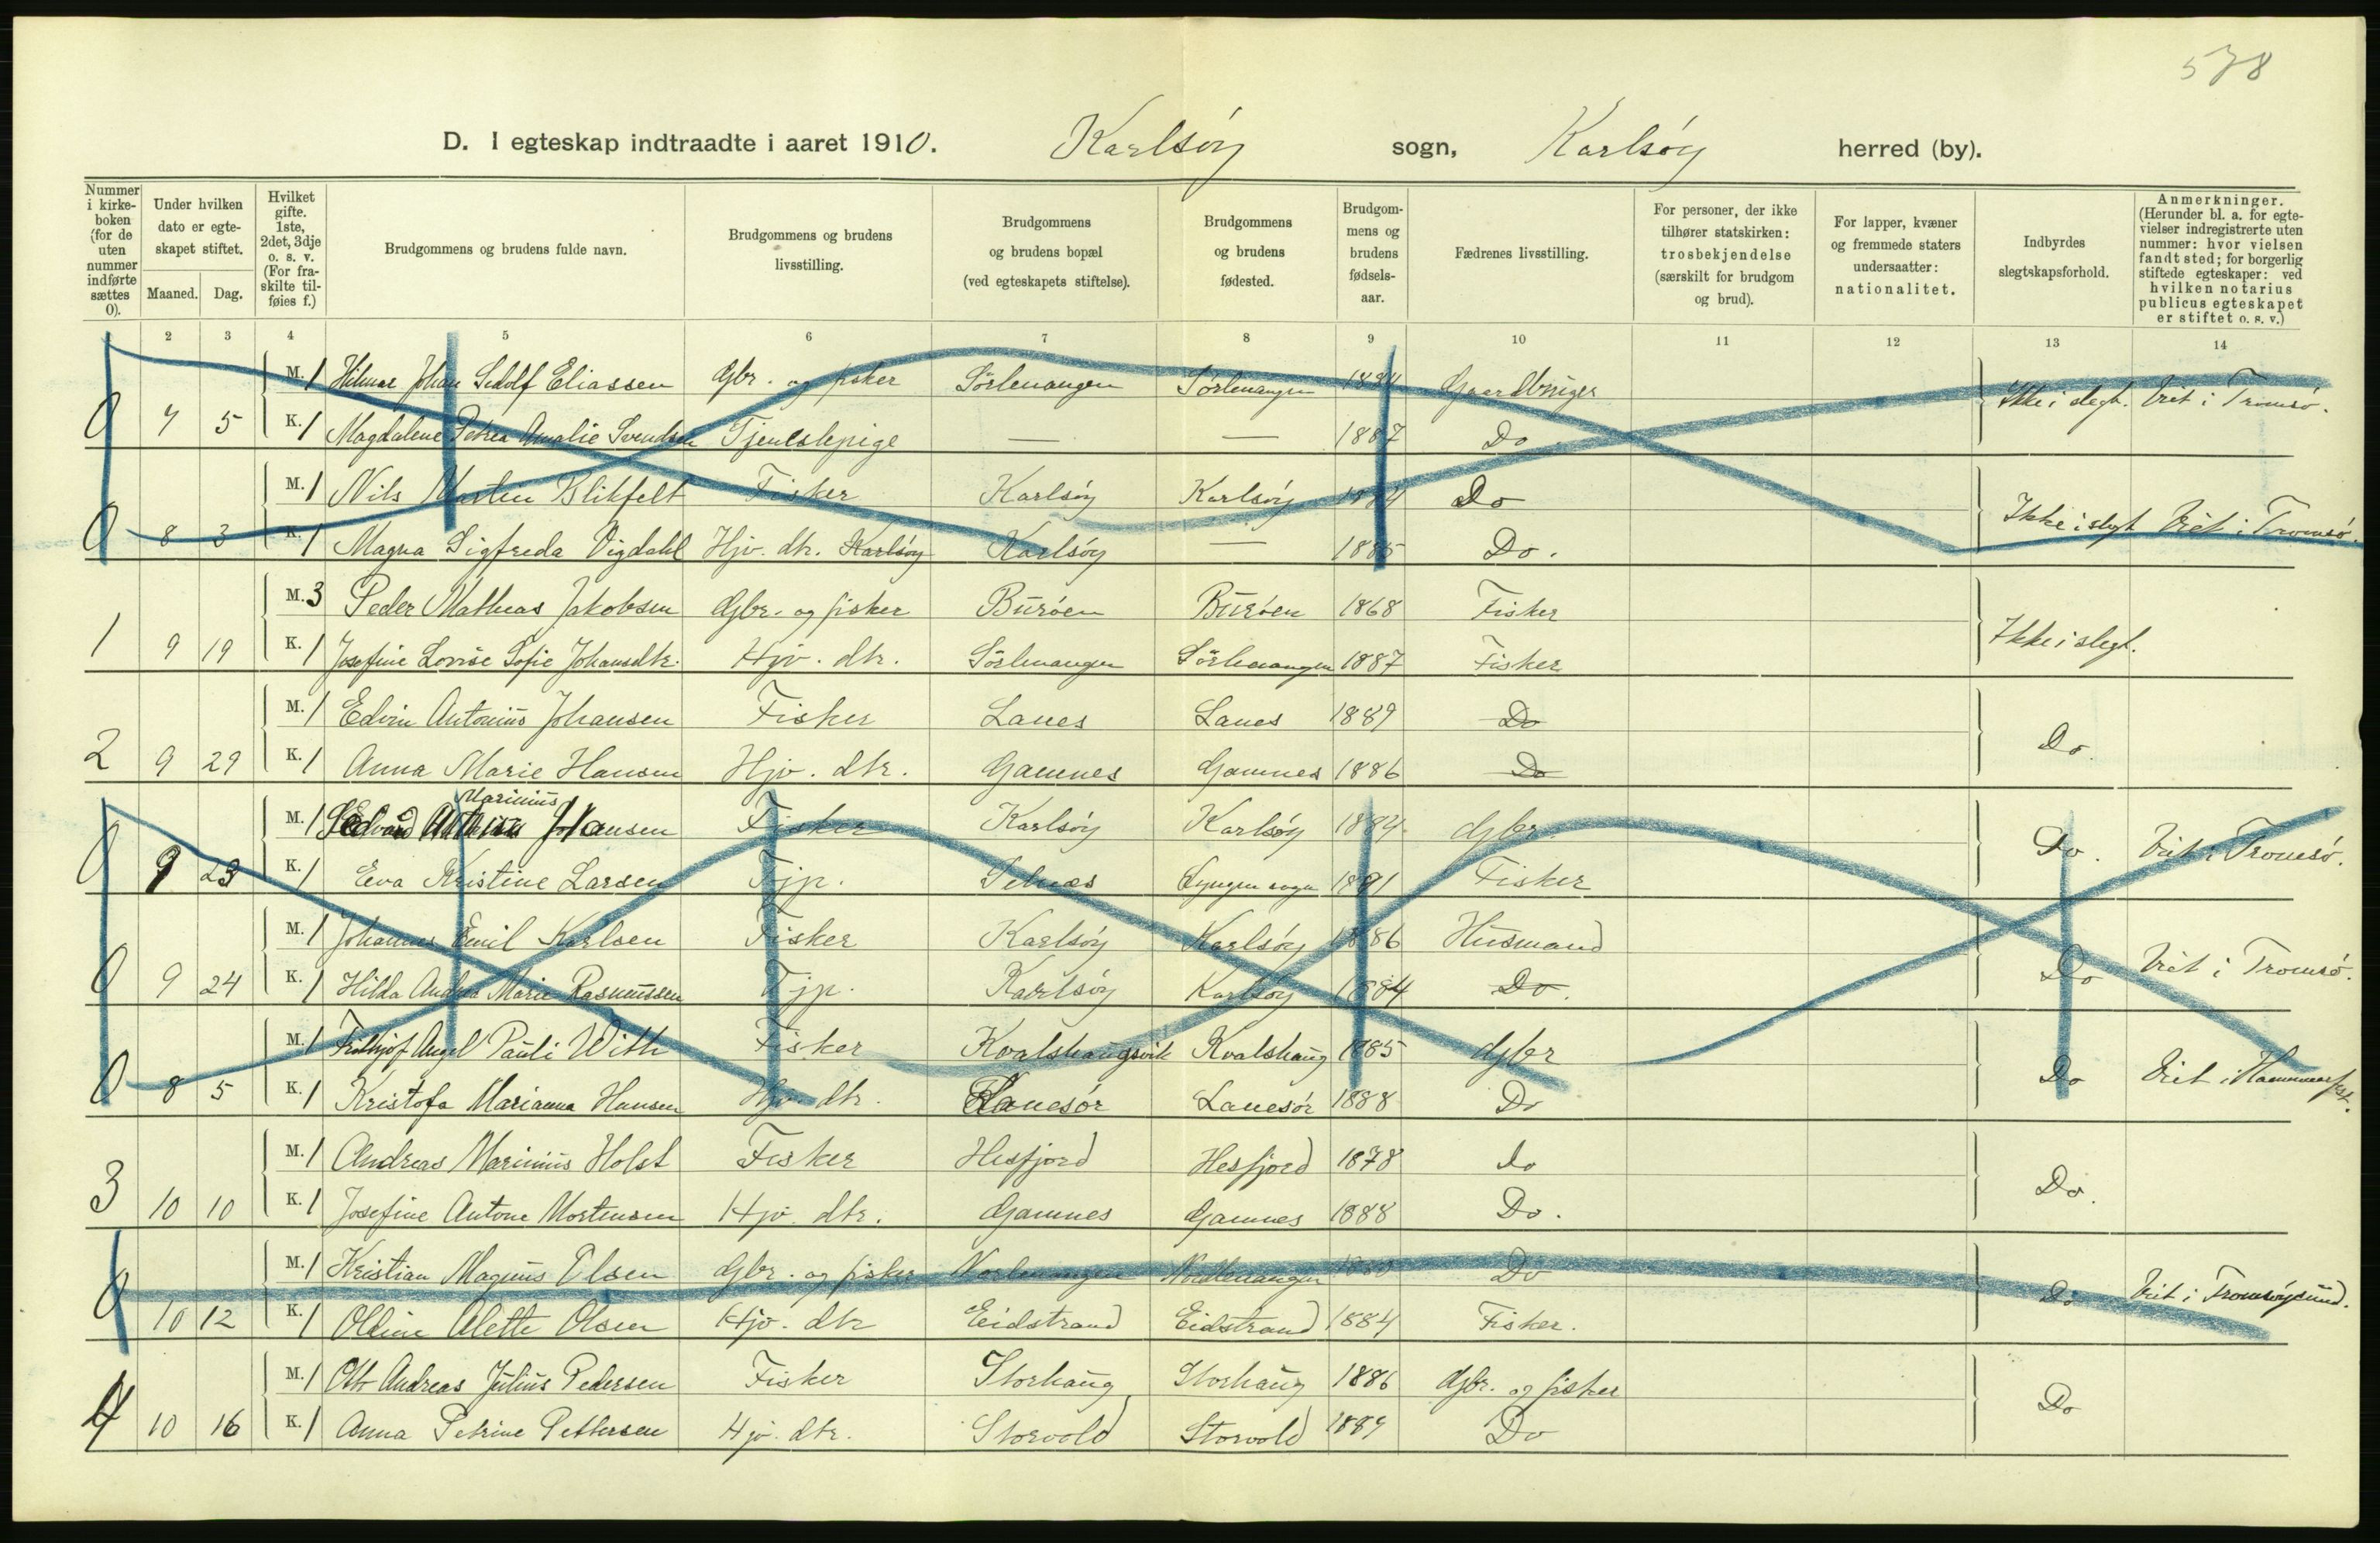 578
D. I egteskap indtraadte i aaret 1910. Karlsöy sogn, Karlsöy herred (by).
Nummer i kirke-boken (for de uten nummer indførte sættes 0).
Under hvilken dato er egte-skapet stiftet. Maaned. Dag.
Hvilket gifte. 1ste, 2det, 3dje o. s. v. (For fra-skilte til-føies f.)
Brudgommens og brudens fulde navn.
Brudgommens og brudens livsstilling.
Brudgommens og brudens bopæl (ved egteskapets stiftelse).
Brudgommens og brudens fødested.
Brudgom-mens og brudens fødsels-aar.
Fædrenes livsstilling.
For personer, der ikke tilhører statskirken: trosbekjendelse (særskilt for brudgom og brud).
For lapper, kvæner og fremmede staters undersaatter: nationalitet.
Indbyrdes slegtskapsforhold.
Anmerkninger. (Herunder bl. a. for egte-vielser indregistrerte uten nummer: hvor vielsen fandt sted; for borgerlig stiftede egteskaper: ved hvilken notarius publicus egteskapet er stiftet o. s. v.)
2 3 4 5 6 7 8 9 10 11 12 13 14
M. 1 Hilmar Johan Sedolf Eliassen Gbr. og fisker Sörlenangen Sörlenangen 1884 Gaardbruger
0 7 5 K. 1 Magdalene Petrea Amalie Svendsen Tjenestepige — — 1887 Do Ikke i slegt. Viet i Tromsö.
M. 1 Nils Martin Blikfelt Fisker Karlsöy Karlsöy 1884 Do
0 8 3 K. 1 Magna Sigfreda Vigdahl Hjv. dtr. Karlsöy Karlsöy — 1885 Do. Ikke i slegt Viet i Tromsö.
M. 3 Peder Mathias Jakobsen Gbr. og fisker Buröen Buröen 1868 Fisker
1 9 19 K. 1 Josefine Lovise Sofie Johansdtr. Hjv. dtr. Sörlenangen Sörlenangen 1887 Fisker Ikke i slegt.
M. 1 Edvin Antonius Johansen Fisker Lanes Lanes 1889 Do
2 9 29 K. 1 Anna Marie Hansen Hjv. dtr. Gamnes Gamnes 1886 Do Do
Marinius
M. 1 Edvard Johansen Fisker Karlsöy Karlsöy 1884 Gbr.
0 9 23 K. 1 Eva Kristine Larsen Tjp. Selnes Lyngen sogn 1891 Fisker Do. Viet i Tromsö.
M. 1 Johannes Emil Karlsen Fisker Karlsöy Karlsöy 1886 Husmand
0 9 24 K. 1 Hilda Andrea Marie Rasmussen Tjp. Karlsöy Karlsöy 1884 Do. Do Viet i Tromsö.
M. 1 Fridtjof Angel Pauli With Fisker Kvalshaugsvik Kvalshaug 1885 Gbr
0 8 5 K. 1 Kristofa Marianna Hansen Hjv. dtr. Lanesör Lanesör 1888 Do Do Viet i Hammerfest.
M. 1 Andreas Marinius Holst Fisker Hesfjord Hesfjord 1878 do
3 10 10 K. 1 Josefine Antone Mortensen Hjv. dtr. Gamnes Gamnes 1888 Do. Do.
M. 1 Kristian Magnus Olsen Gbr. og fisker Norlenangen Nordlenangen 1880 Do
0 10 12 K. 1 Oldine Alette Olsen Hjv. dtr Eidstrand Eidstrand 1884 Fisker. Do Viet i Tromsöysund.
M. 1 Ott Andreas Julius Pedersen Fisker Storhaug Storhaug 1886 Gbr. og fisker
4 10 16 K. 1 Anna Petrine Pettersen Hjv. dtr. Storvold Storvold 1889 Do Do